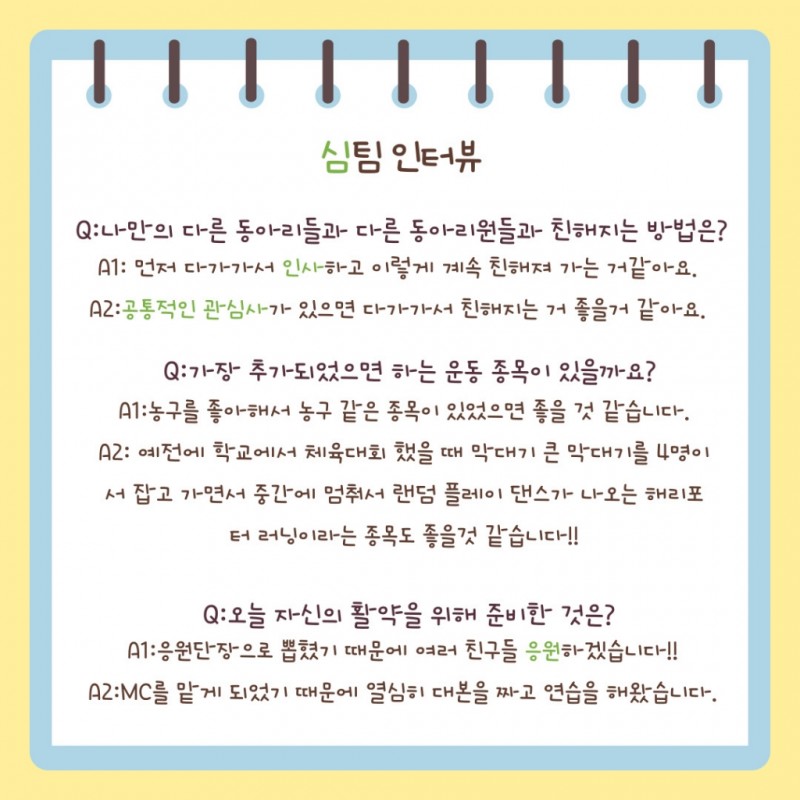 심팀 인터뷰
Q:나만의 다른 동아리들과 다른 동아리원들과 친해지는 방법은?
A1: 먼저 다가가서 인사하고 이렇게 계속 친해져 가는 거같아요.
A2:공통적인 관심사가 있으면 다가가서 친해지는 거 좋을거 같아요.
Q:가장 추가되었으면 하는 운동 종목이 있을까요?
A1:농구를 좋아해서 농구 같은 종목이 있었으면 좋을 것 같습니다.
A2: 예전에 학교에서 체육대회 했을 때 막대기 큰 막대기를 4명이
서 잡고 가면서 중간에 멈춰서 랜덤 플레이 댄스가 나오는 해리포
터 러닝이라는 종목도 좋을것 같습니다!!
Q:오늘 자신의 활약을 위해 준비한 것은?
A1:응원단장으로 뽑혔기 때문에 여러 친구들 응원하겠습니다!!
A2:MC를 맡게 되었기 때문에 열심히 대본을 짜고 연습을 해왔습니다.